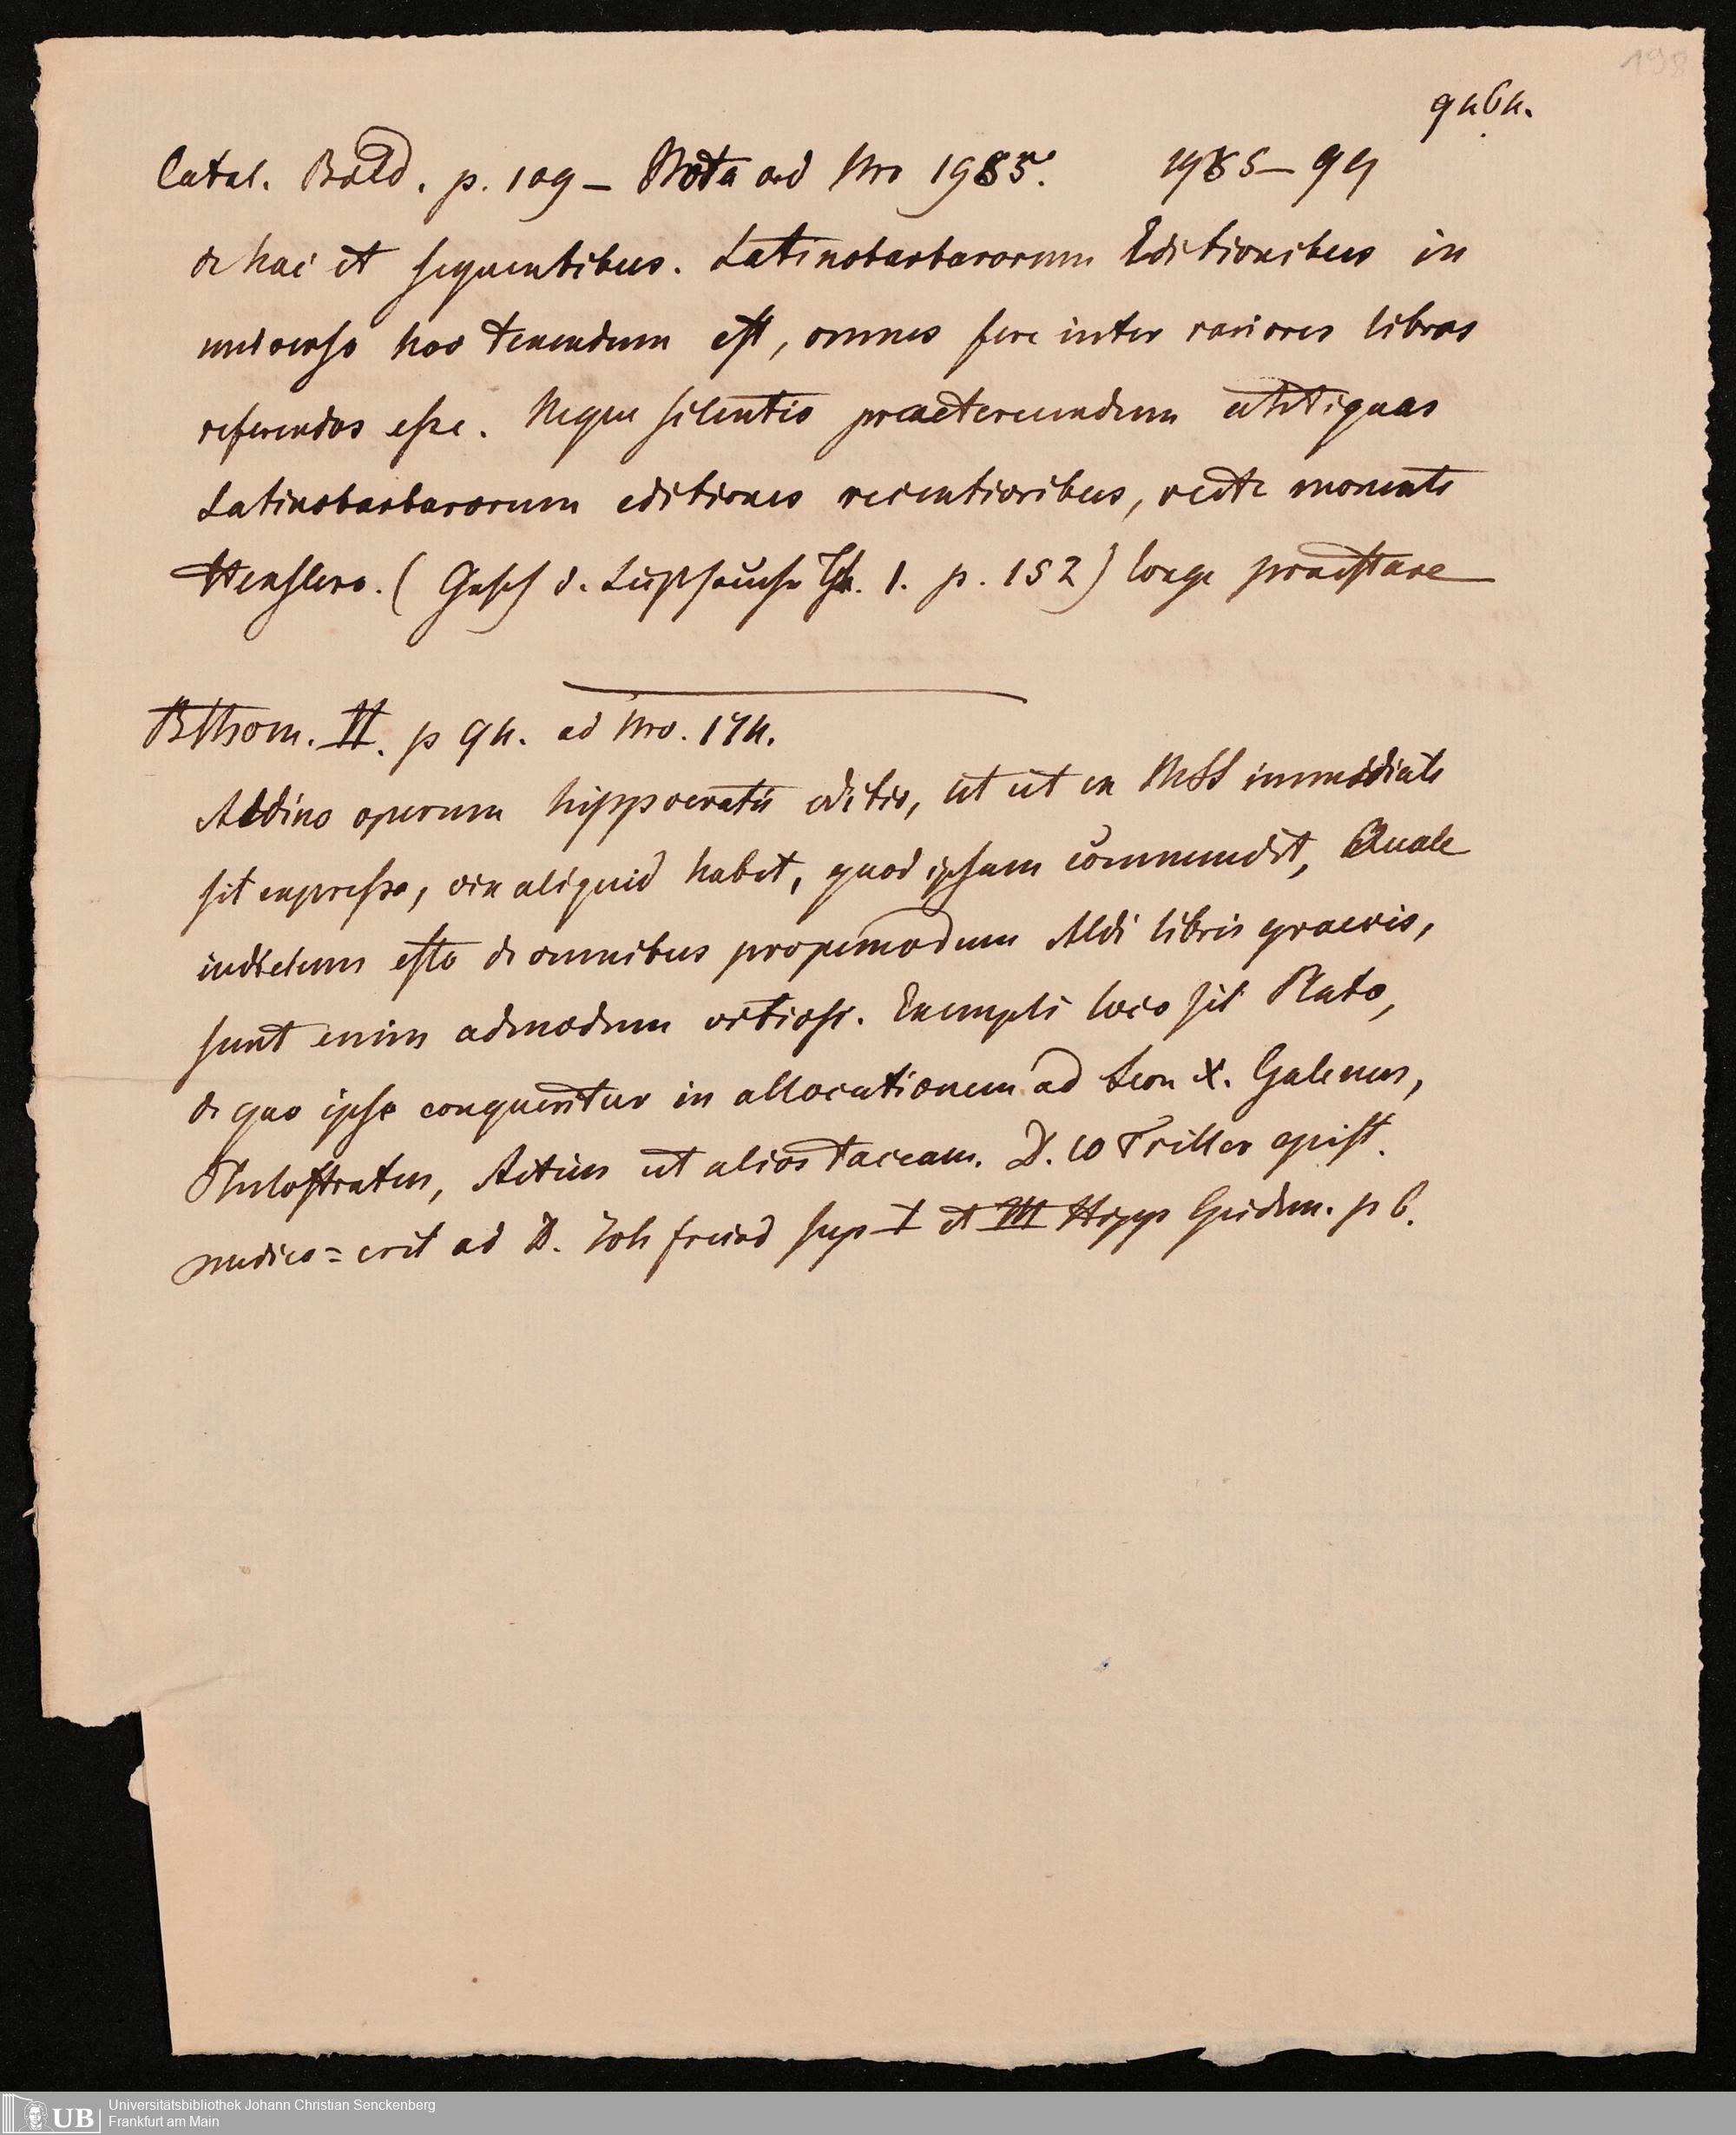 198
9464.
Catal. Bald. p. 109 — Nota ad Nro 1985. 1985—99
de hac et sequentibus. Latinobarbarorum Editionibus in
universo hoc tenendum est, omnes fere inter rariores libros
referendos esse. Neque silentio praetereundum antiquas
Latinobarbarorum editiones recentioribus, recte monente
Henslero. (Gesch d. Lustseuche Th. 1. p. 152) longe praestare
II. p 94. ad Nro. 174.
Aldino operum hippocratis editio, ut ut ex MSS immediate
sit expressa, vix aliquid habet, quod ipsam commendet, Quale
indicium esto de omnibus propemodum Aldi libris graecis,
sunt enim admodum vitiosi. Exempli loco sit Plato,
de quo ipse conqueritur in allocutionem ad Leon X. Galenus,
Philostratus, Aetius ut alios taceam. D. W Triller epist.
medico=crit ad D. Joh freind sup I et III Hipp Epidem. p 6.
UB
Universitätsbibliothek Johann Christian Senckenberg
Frankfurt am Main